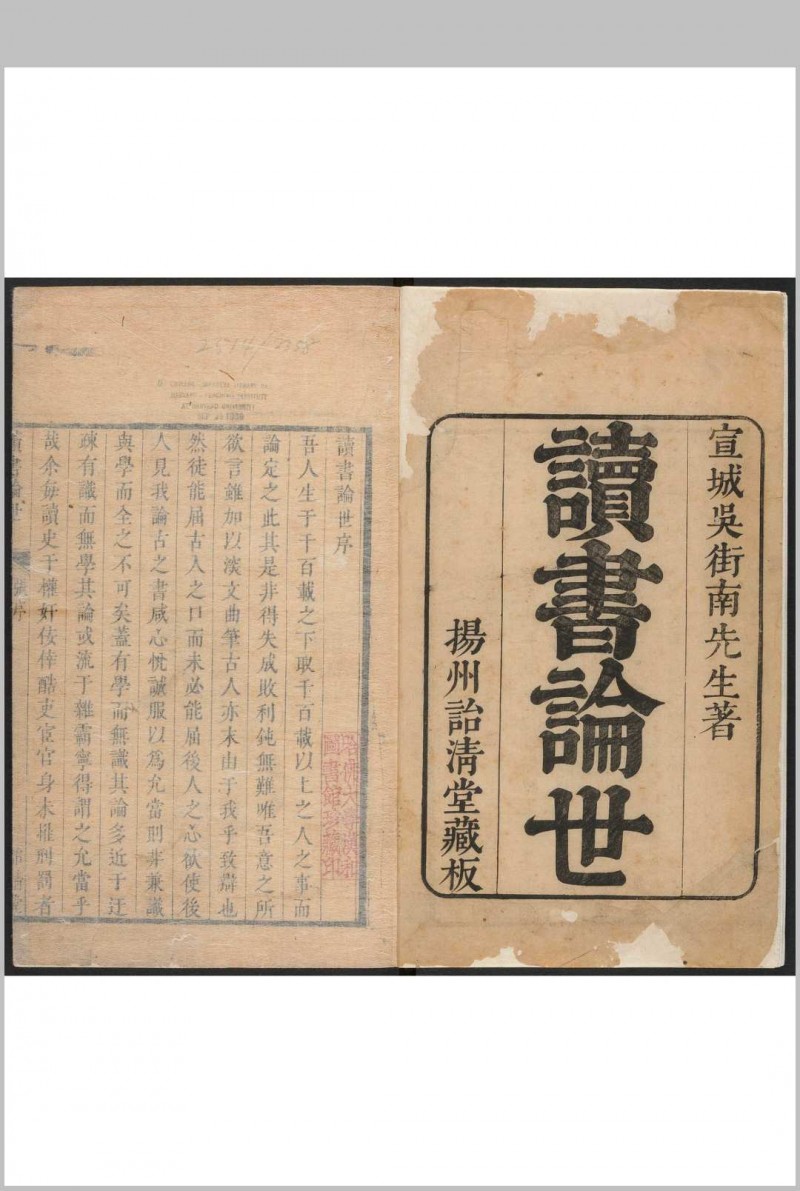 宣城吳街南先生著
讀書論世
揚州詒清堂藏板
讀書論世序
吾人生于千百載之下取千百載以上之人之事而
論定之此其是非得失成敗利鈍無難唯吾意之所
欲言雖加以淡文曲筆古人亦末由于我乎致辯也
然徒能屈古人之口而未必能屈後人之心欲使後
人見我論古之書咸心悅誠服以為允當則非兼識
與學而全之不可矣蓋有學而無識其論多近于迂
疎有識而無學其論或流于雜霸寧得謂之允當乎
哉余每讀史于權奸佞倖酷吏宦官身未罹刑罰者
讀書論世
序
哈佛大學漢和
圖書館珍藏印
2514/2358